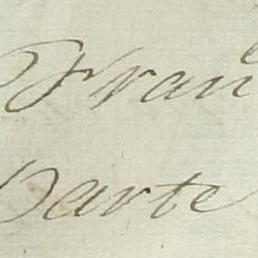 Fran
Parte